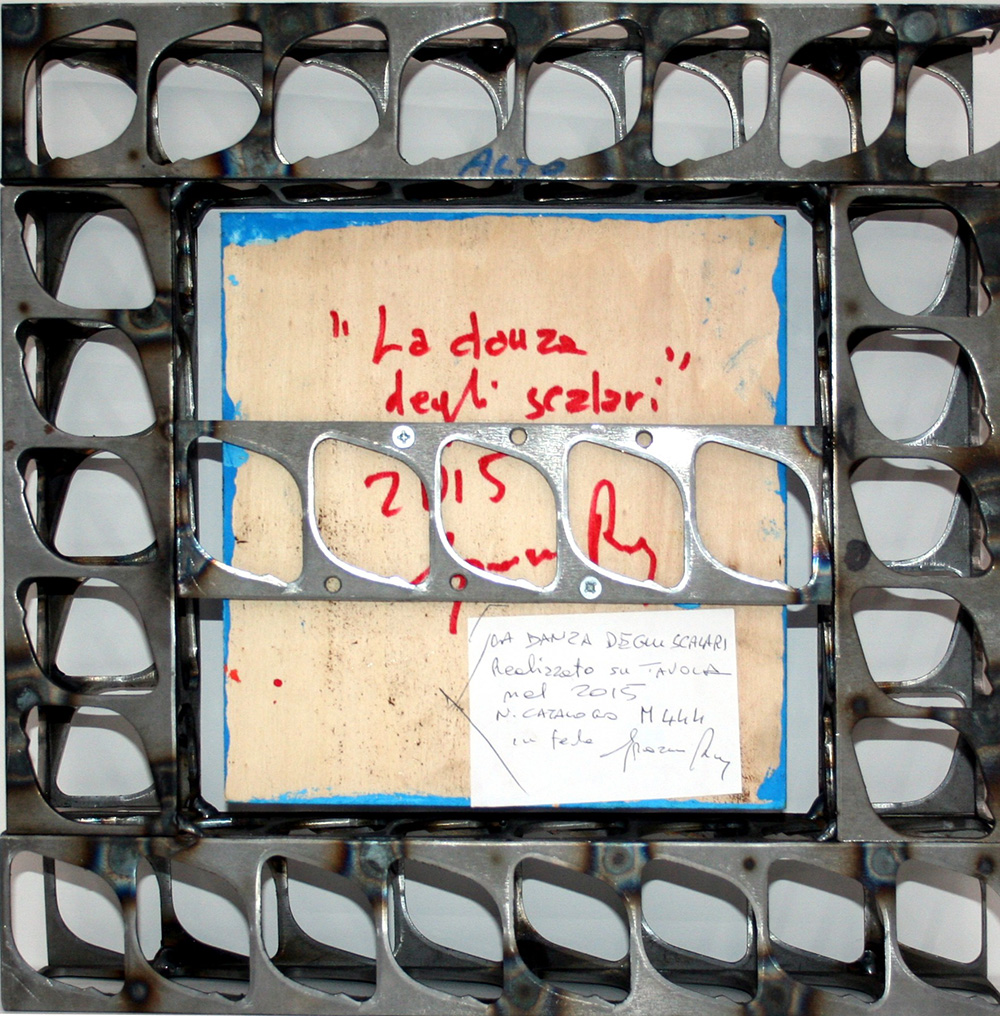 ALTO
"La danza
degli scalari"
2015
LA DANZA DEGLI SCALARI
Realizzato su TAVOLA
nel 2015
N. CATALOGO M444
in fede